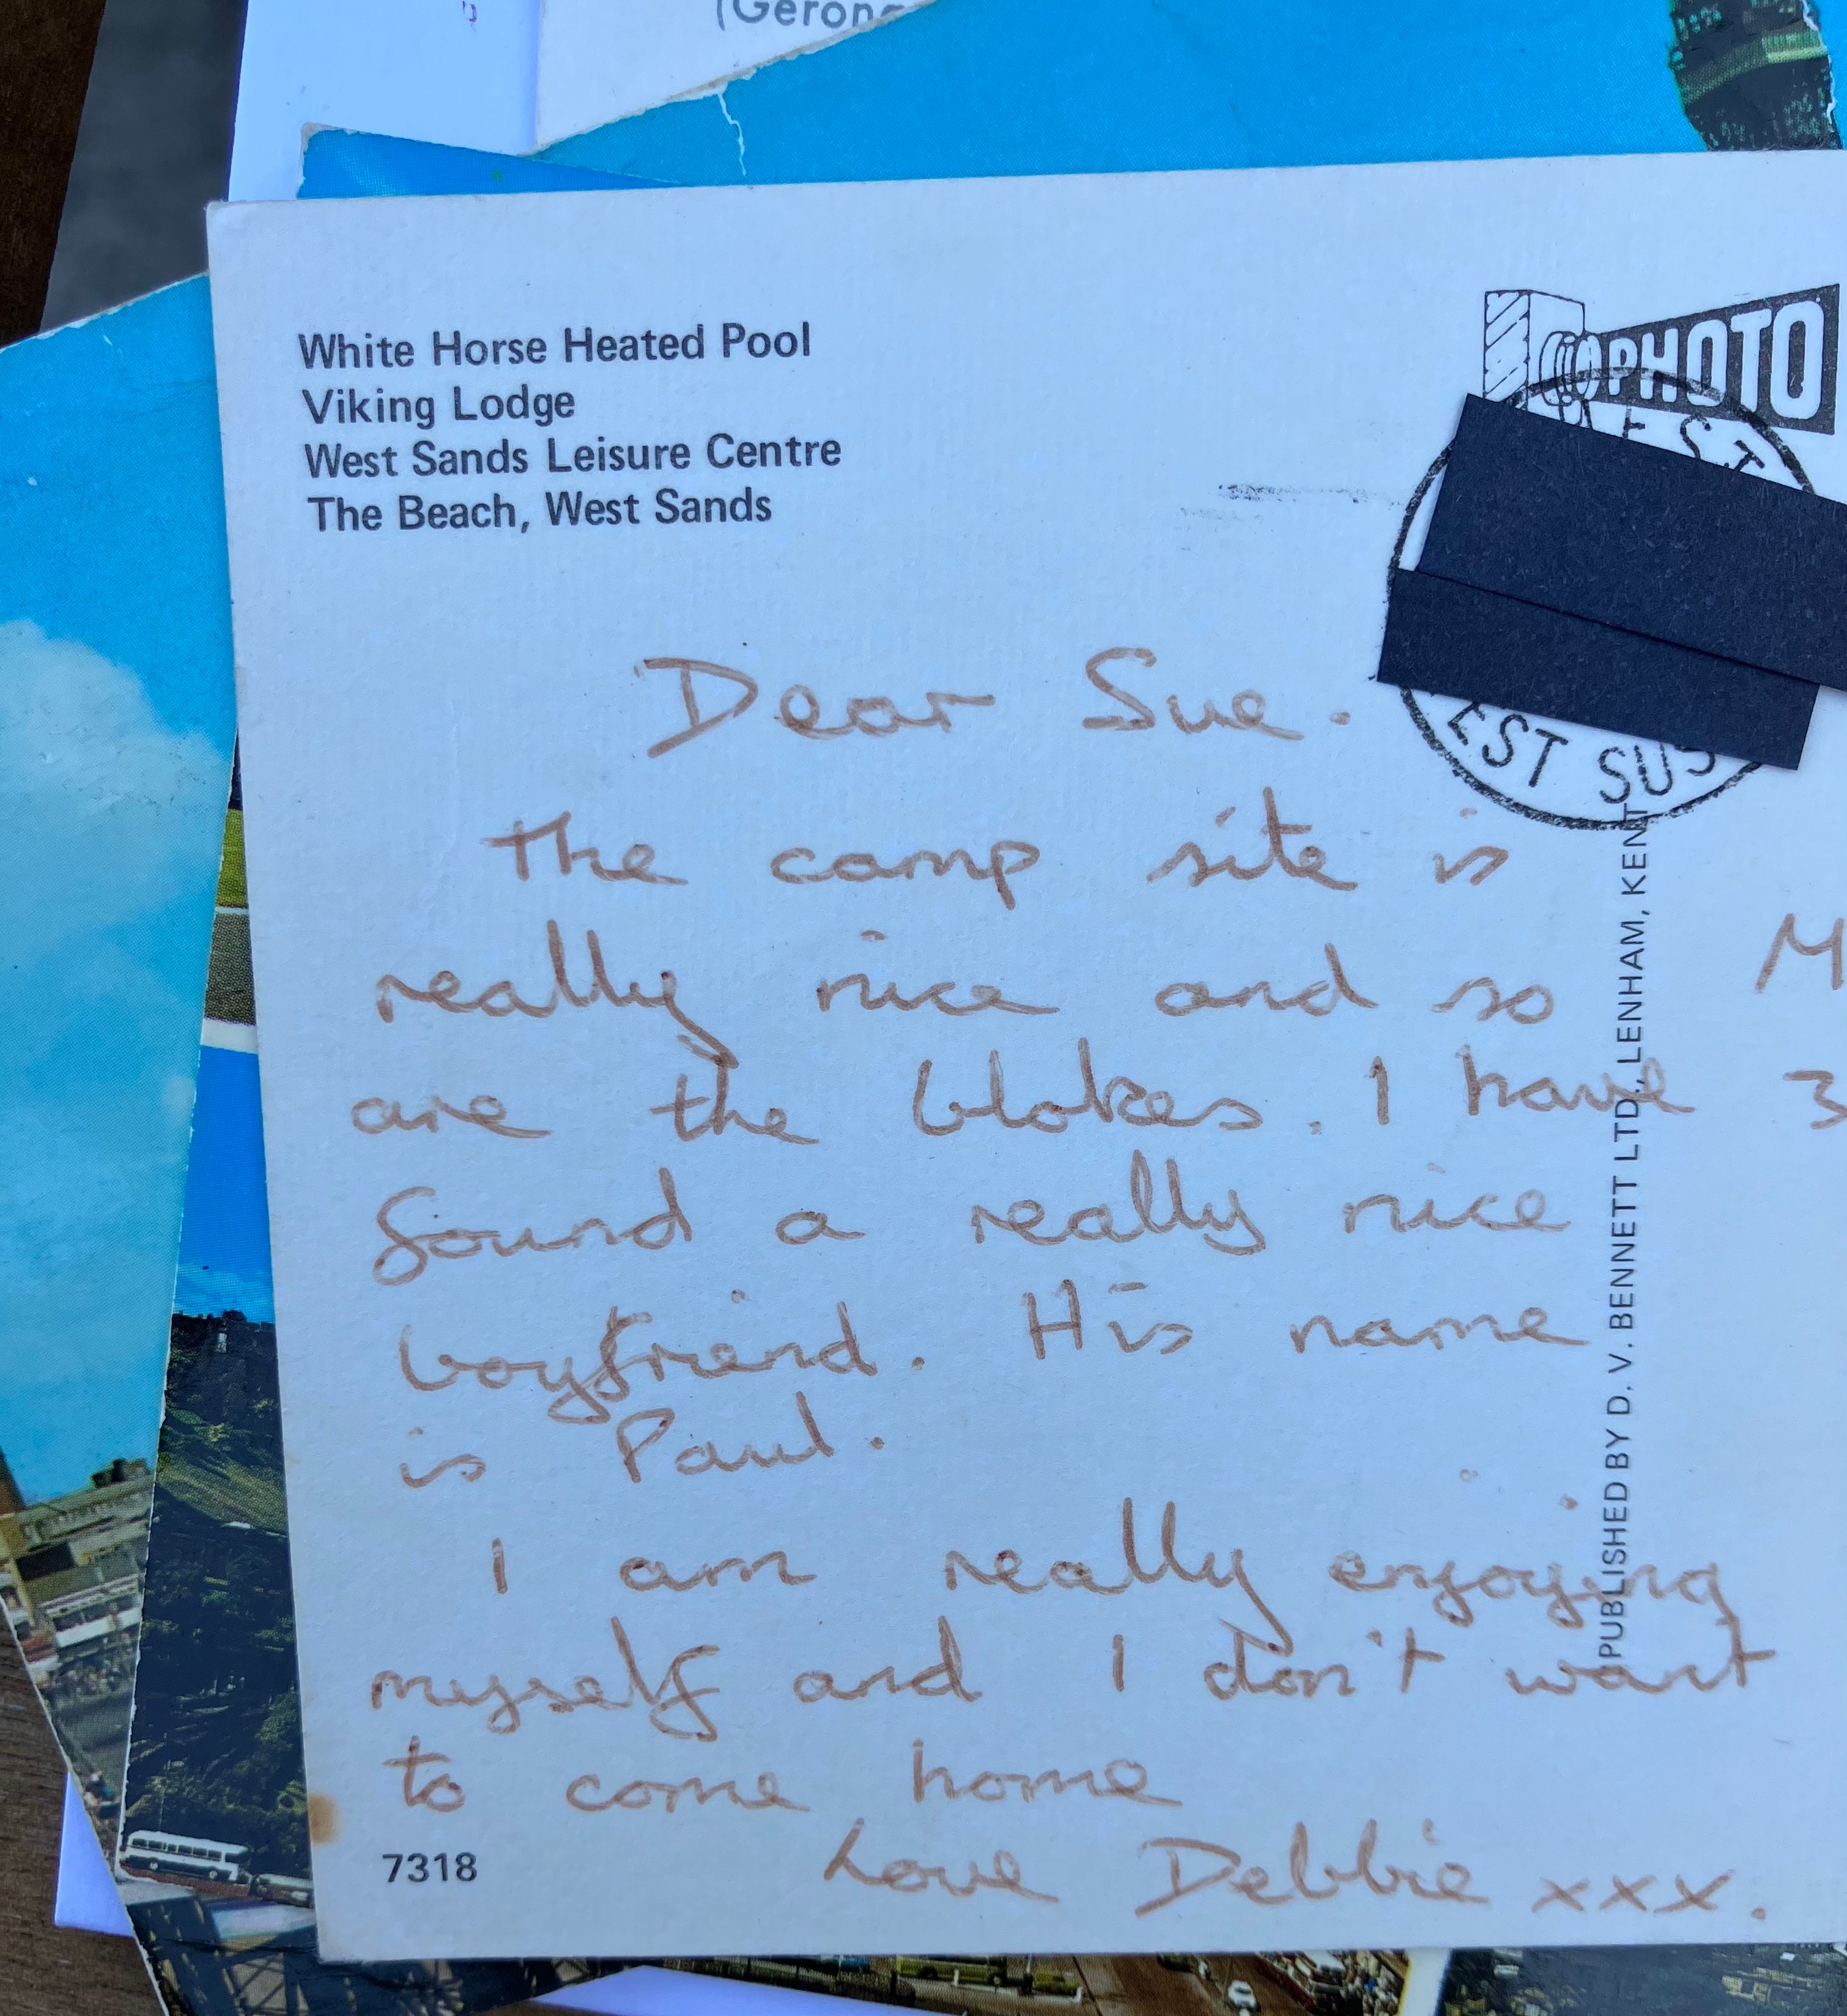 White Horse Heated Pool
Viking Lodge
West Sands Leisure Centre
The Beach, West Sands
PHOTO
EST SUS
Dear Sue.
The camp site is
really nice and so
are the blokes. I have
found a really nice
boyfriend. His name
is Paul.
I am really enjoying
myself and I don't want
to come home
Love Debbie xxx.
7318
PUBLISHED BY D. V. BENNETT LTD, LENHAM, KENT
M
3